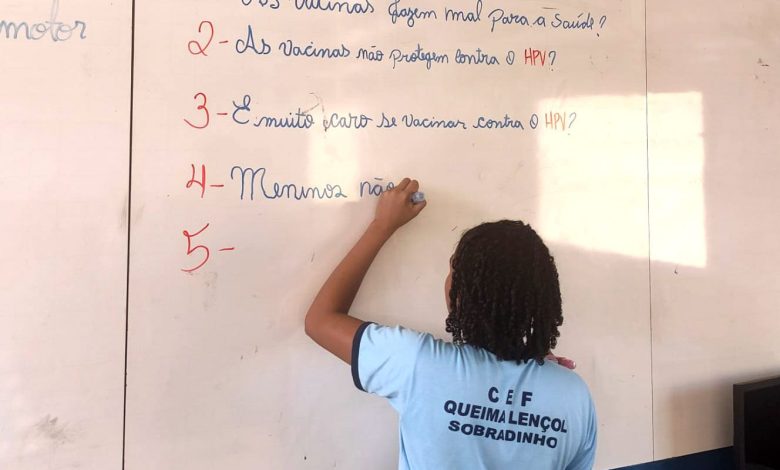 motor
vacinas fazem mal para a Saúde?
2- As vacinas não protegem contra o HPV?
3- É muito caro se vacinar contra o HPV?
4- Meninos não
5-
CEF
QUEIMA LENÇOL
SOBRADINHO